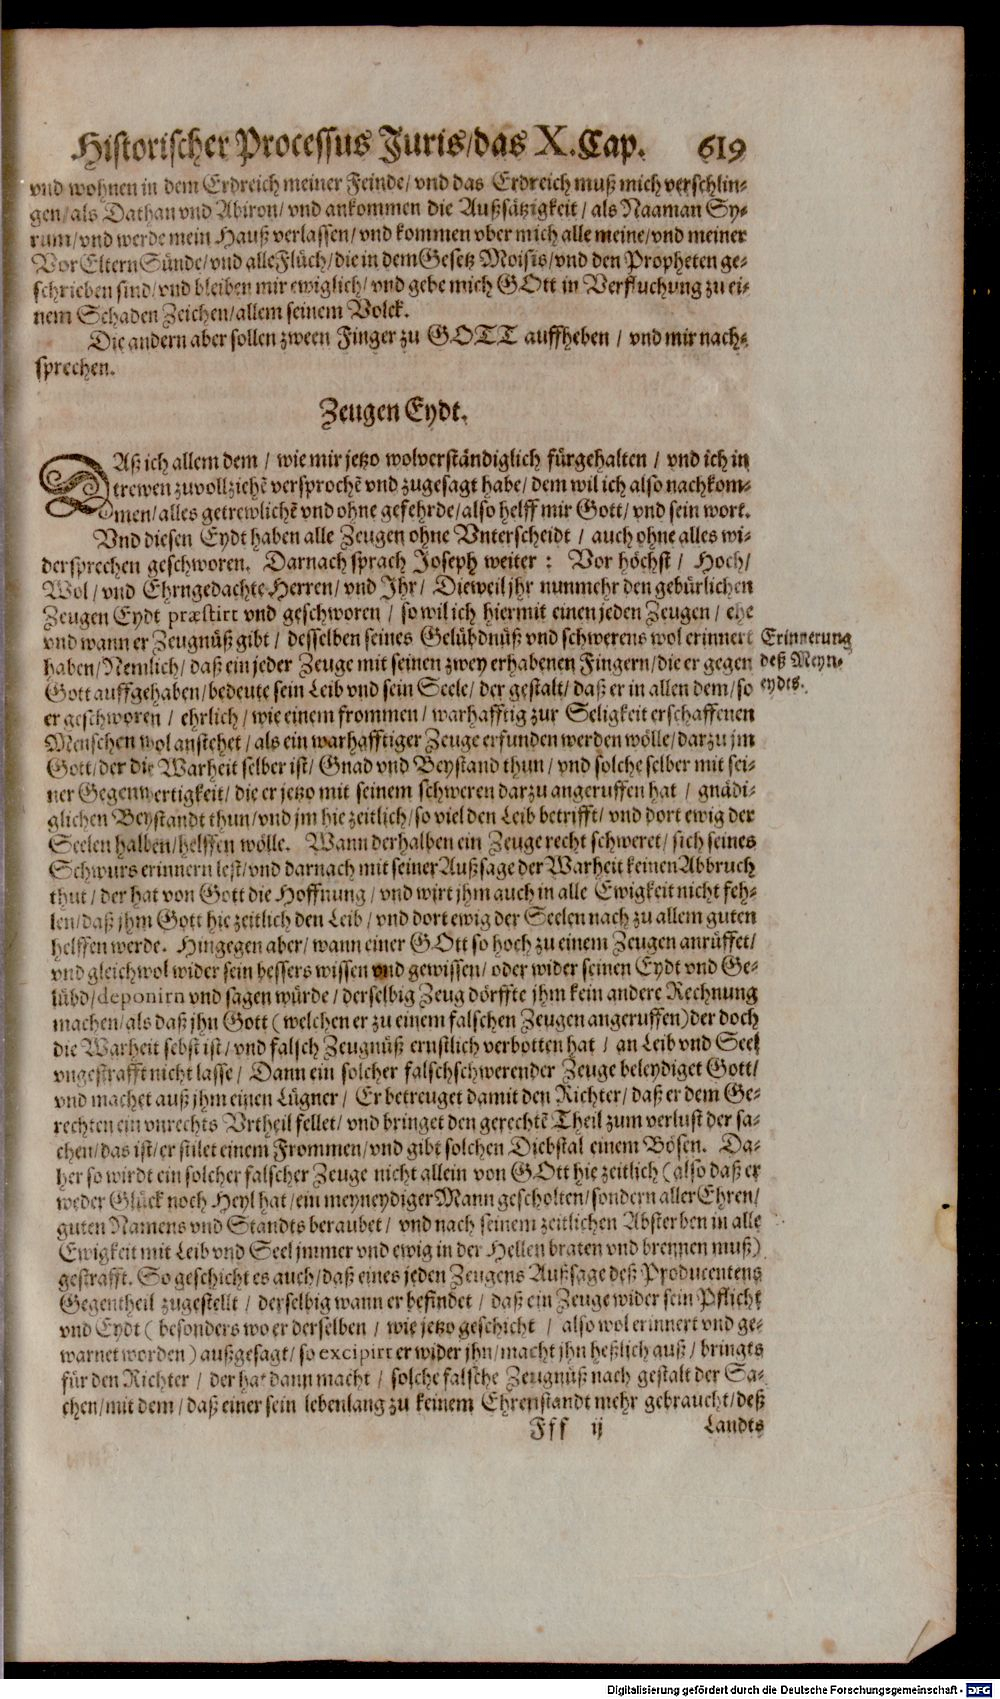 Historischer Processus Juris/das X. Cap. 619
vnd wohnen in dem Erdreich meiner Feinde/ vnd das Erdreich muß mich verschlin-
gen/als Dathan vnd Abiron/ vnd ankommen die Außsätzigkeit/ als Naaman Sy-
rum/vnd werde mein Hauß verlassen/ vnd kommen vber mich alle meine/vnd meiner
Vor Eltern Sünde/vnd alle Flüch/die in dem Gesetz Moisis/vnd den Propheten ge-
schrieben sind/vnd bleiben mir ewiglich/ vnd gebe mich GOtt in Verfluchung zu ei-
nem Schaden Zeichen/allem seinem Volck.
Die andern aber sollen zween Finger zu GOTT auffheben / vnd mir nach-
sprechen.
Zeugen Eydt.
DAß ich allem dem / wie mir jetzo wolverständiglich fürgehalten / vnd ich in
trewen zuvollziehē versprochē vnd zugesagt habe/ dem wil ich also nachkom-
men/alles getrewlichē vnd ohne gefehrde/also helff mir Gott/ vnd sein wort.
Vnd diesen Eydt haben alle Zeugen ohne Vnterscheidt / auch ohne alles wi-
dersprechen geschworen. Darnach sprach Joseph weiter : Vor höchst / Hoch/
Wol/ vnd Ehrngedachte Herren/ vnd Ihr/ Dieweil jhr nunmehr den gebürlichen
Zeugen Eydt præstirt vnd geschworen / so wil ich hiermit einen jeden Zeugen / ehe
vnd wann er Zeugnüß gibt / desselben seines Gelübdnüß vnd schwerens wol erinnert
Erinnerung
haben/Nemlich/ daß ein jeder Zeuge mit seinen zwey erhabenen Fingern/die er gegen
deß Meyn-
Gott auffgehaben/bedeute sein Leib vnd sein Seele/ der gestalt/ daß er in allen dem/so
eydts.
er geschworen / ehrlich/ wie einem frommen / warhafftig zur Seligkeit erschaffenen
Menschen wol anstehet/als ein warhafftiger Zeuge erfunden werden wölle/darzu jm
Gott/der die Warheit selber ist/ Gnad vnd Beystand thun/ vnd solche selber mit sei-
ner Gegenwertigkeit/ die er jetzo mit seinem schweren darzu angeruffen hat / gnädi-
glichen Beystandt thun/vnd jm hie zeitlich/so viel den Leib betrifft/ vnd dort ewig der
Seelen halben/helffen wölle. Wann derhalben ein Zeuge recht schweret/ sich seines
Schwurs erinnern lest/vnd darnach mit seiner Außsage der Warheit keinen Abbruch
thut/ der hat von Gott die Hoffnung / vnd wirt jhm auch in alle Ewigkeit nicht feh-
len/daß jhm Gott hie zeitlich den Leib/ vnd dort ewig der Seelen nach zu allem guten
helffen werde. Hingegen aber/ wann einer GOtt so hoch zu einem Zeugen anrüffet/
vnd gleichwol wider sein bessers wissen vnd gewissen/ oder wider seinen Eydt vnd Ge-
lübd/deponirn vnd sagen würde/ derselbig Zeug dörffte jhm kein andere Rechnung
machen/als daß jhn Gott (welchen er zu einem falschen Zeugen angeruffen) der doch
die Warheit sebst ist/ vnd falsch Zeugnüß ernstlich verbotten hat / an Leib vnd Seel
vngestrafft nicht lasse/ Dann ein solcher falschschwerender Zeuge beleydiget Gott/
vnd machet auß jhm einen Lügner/ Er betreuget damit den Richter/ daß er dem Ge-
rechten ein vnrechts Vrtheil fellet/ vnd bringet den gerechtē Theil zum verlust der sa-
chen/das ist/er stilet einem Frommen/vnd gibt solchen Diebstal einem Bösen. Da-
her so wirdt ein solcher falscher Zeuge nicht allein von GOtt hie zeitlich (also daß er
weder Glück noch Heyl hat/ein meyneydiger Mann gescholten/sondern aller Ehren/
guten Namens vnd Standts beraubet/ vnd nach seinem zeitlichen Absterben in alle
Ewigkeit mit Leib vnd Seel jmmer vnd ewig in der Hellen braten vnd brennen muß)
gestrafft. So geschicht es auch/daß eines jeden Zeugens Außsage deß Producentens
Gegentheil zugestellt / derselbig wann er befindet / daß ein Zeuge wider sein Pflicht
vnd Eydt ( besonders wo er derselben / wie jetzo geschicht / also wol erinnert vnd ge-
warnet worden) außgesagt/ so excipirt er wider jhn/macht jhn heßlich auß/ bringts
für den Richter / der hat dann macht / solche falsche Zeugnüß nach gestalt der Sa-
chen/mit dem/ daß einer sein lebenlang zu keinem Ehrenstandt mehr gebraucht/deß
Fff ij Landts
Digitalisierung gefördert durch die Deutsche Forschungsgemeinschaft - DFG